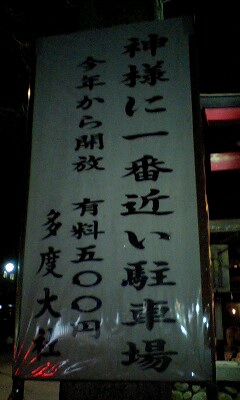 神様に一番近い駐車場
今年から開放 有料五〇〇円
多度大社